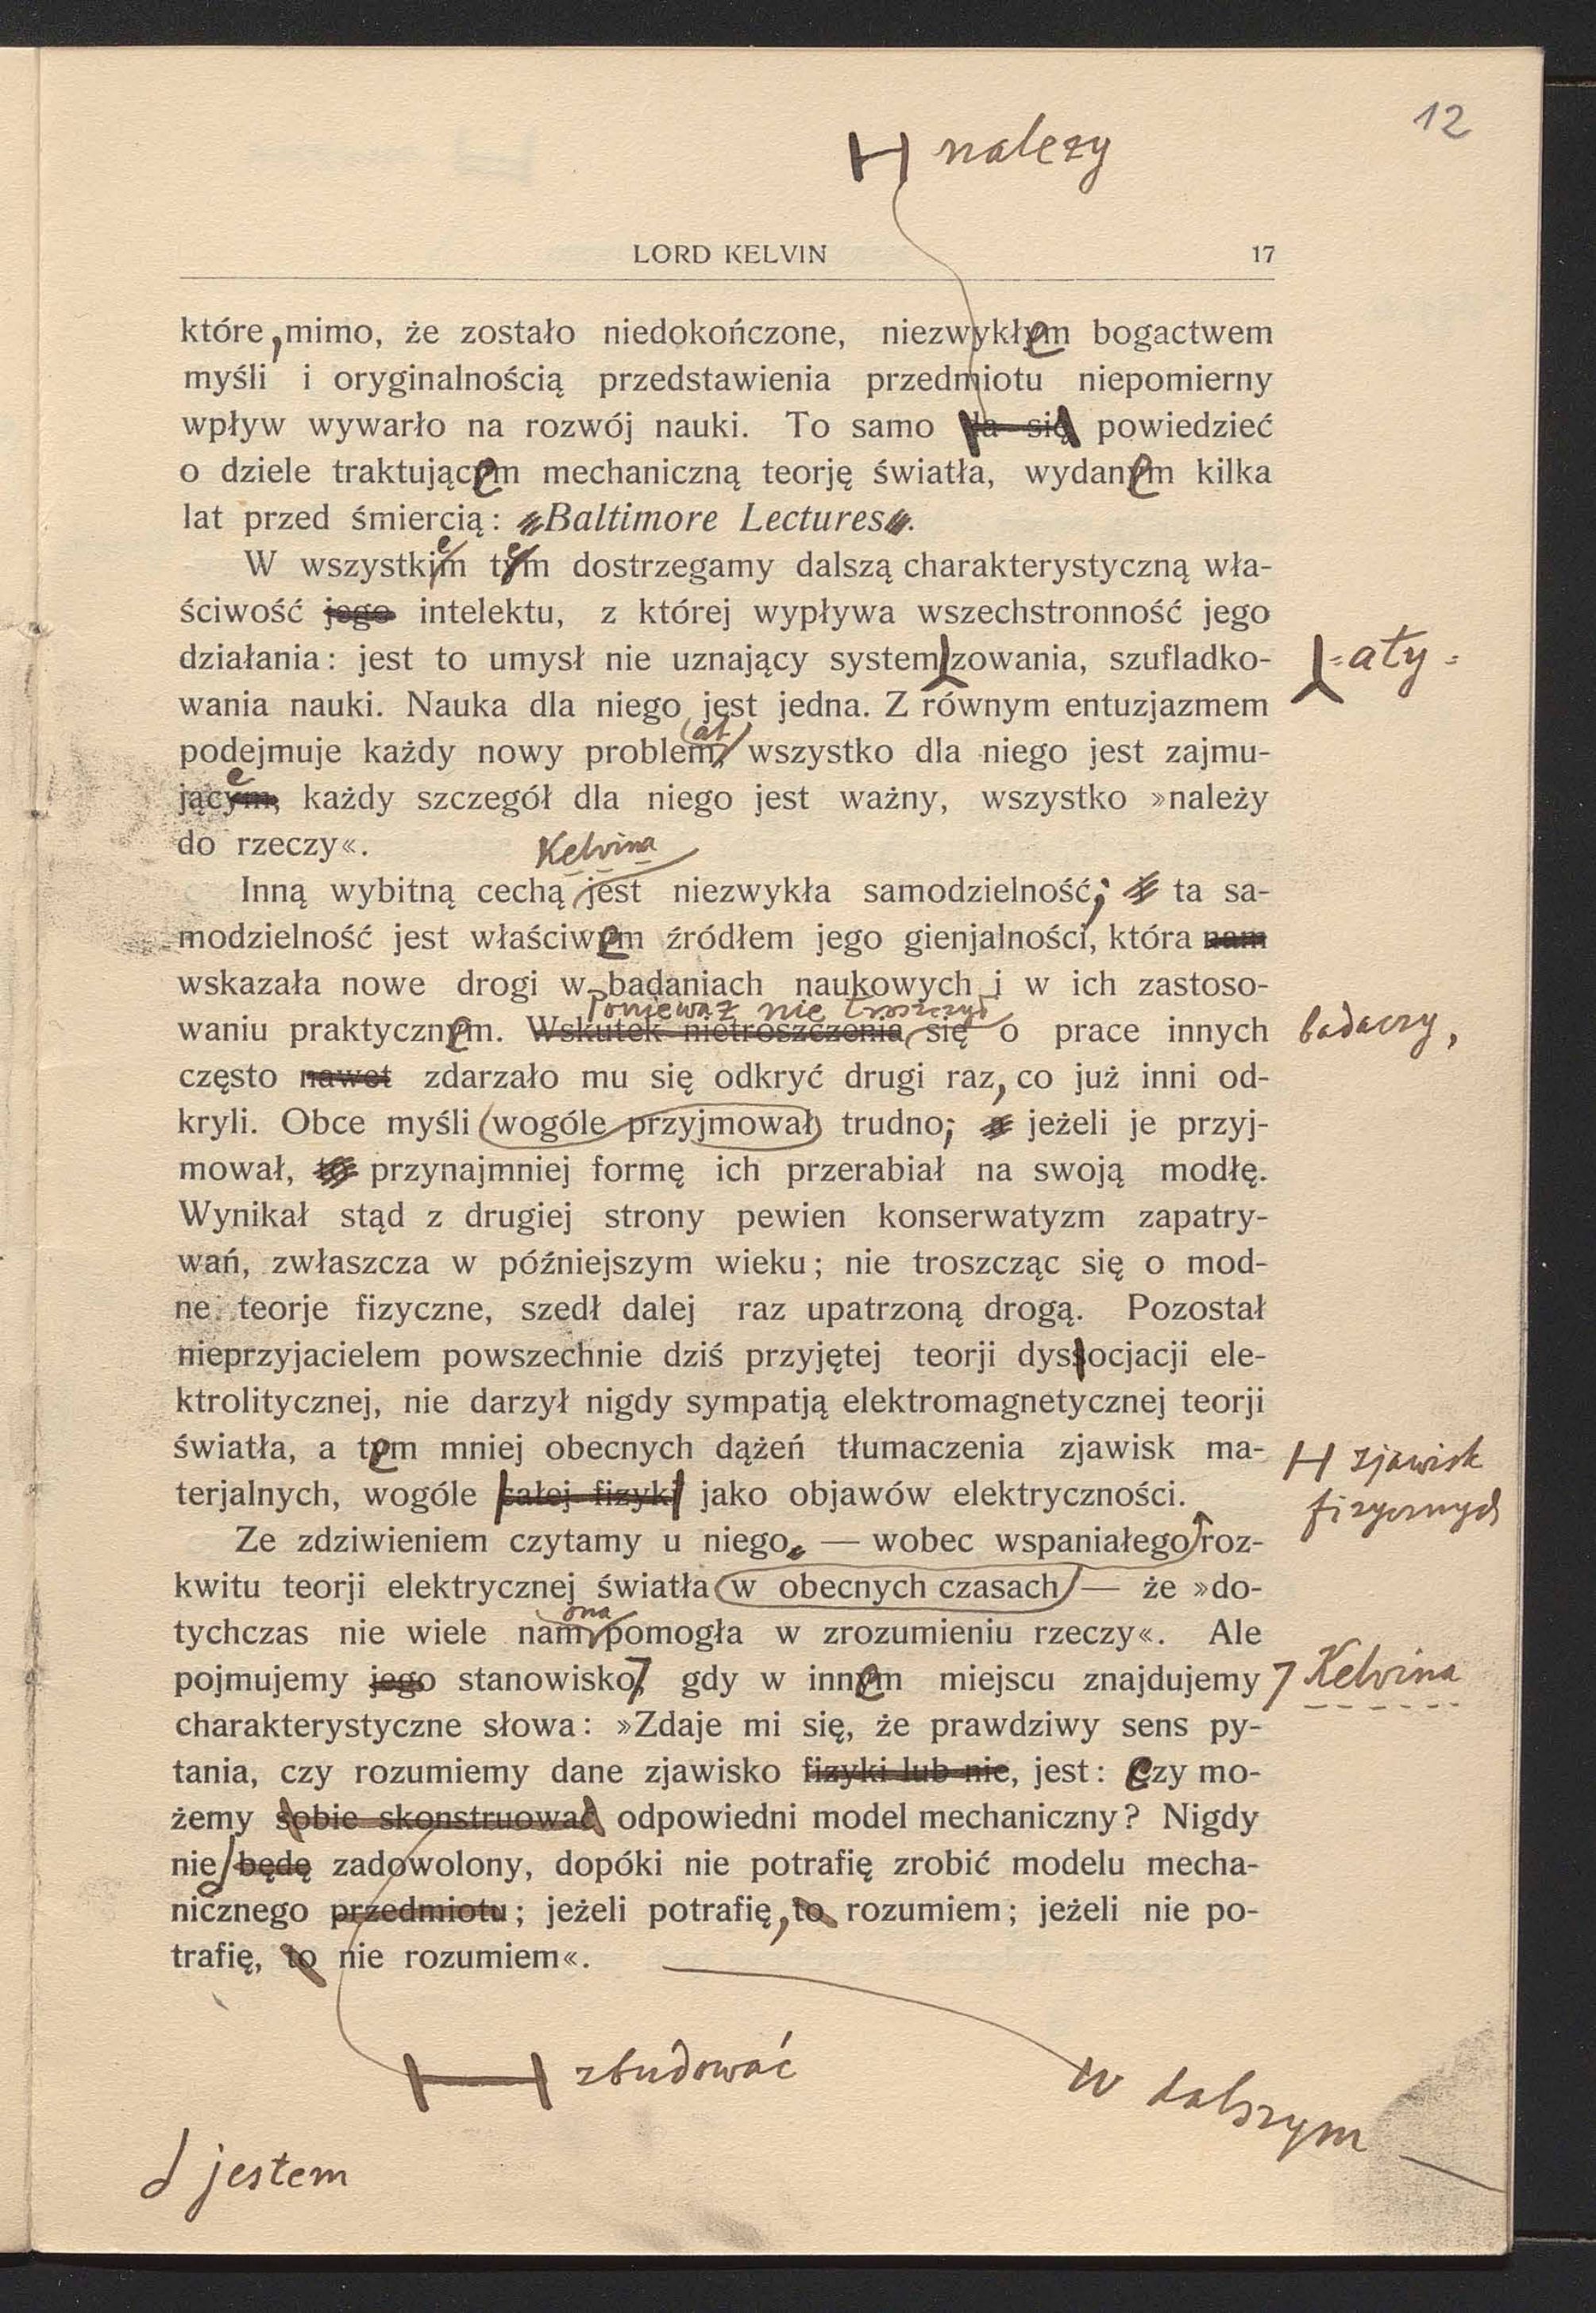 12
належy
LORD KELVIN 17
które, mimo, że zostało niedokończone, niezwykłem bogactwem
myśli i oryginalnością przedstawienia przedmiotu niepomierny
wpływ wywarło na rozwój nauki. To samo da się powiedzieć
o dziele traktującem mechaniczną teorję światła, wydanem kilka
lat przed śmiercią: »Baltimore Lectures«.
e e
W wszystkim tym dostrzegamy dalszą charakterystyczną wła-
ściwość jego intelektu, z której wypływa wszechstronność jego
działania: jest to umysł nie uznający systemizowania, szufladko- =aty=
wania nauki. Nauka dla niego jest jedna. Z równym entuzjazmem
at
podejmuje każdy nowy problem, wszystko dla niego jest zajmu-
e
jącym, każdy szczegół dla niego jest ważny, wszystko »należy
do rzeczy«.
Kelvina
Inną wybitną cechą jest niezwykła samodzielność; ta sa-
modzielność jest właściwem źródłem jego gienjalności, która nam
wskazała nowe drogi w badaniach naukowych i w ich zastoso-
Ponieważ nie troszczył
waniu praktycznem. Wskutek nietroszczenia się o prace innych badaczy,
często nawet zdarzało mu się odkryć drugi raz, co już inni od-
kryli. Obce myśli wogóle przyjmował trudno; jeżeli je przyj-
mował, to przynajmniej formę ich przerabiał na swoją modłę.
Wynikał stąd z drugiej strony pewien konserwatyzm zapatry-
wań, zwłaszcza w późniejszym wieku; nie troszcząc się o mod-
ne teorje fizyczne, szedł dalej raz upatrzoną drogą. Pozostał
nieprzyjacielem powszechnie dziś przyjętej teorji dyssocjacji ele-
ktrolitycznej, nie darzył nigdy sympatją elektromagnetycznej teorji
światła, a tem mniej obecnych dążeń tłumaczenia zjawisk ma- zjawisk
terjalnych, wogóle całej fizyki jako objawów elektryczności. fizycznych
Ze zdziwieniem czytamy u niego, — wobec wspaniałego roz-
kwitu teorji elektrycznej światła w obecnych czasach — że »do-
ona
tychczas nie wiele nam pomogła w zrozumieniu rzeczy«. Ale
pojmujemy jego stanowisko, gdy w innem miejscu znajdujemy Kelvina
charakterystyczne słowa: »Zdaje mi się, że prawdziwy sens py-
tania, czy rozumiemy dane zjawisko fizyki lub nie, jest: czy mo-
żemy sobie skonstruować odpowiedni model mechaniczny? Nigdy
nie będę zadowolony, dopóki nie potrafię zrobić modelu mecha-
nicznego przedmiotu; jeżeli potrafię, to rozumiem; jeżeli nie po-
trafię, to nie rozumiem«.
zbudować
W dalszym
jestem